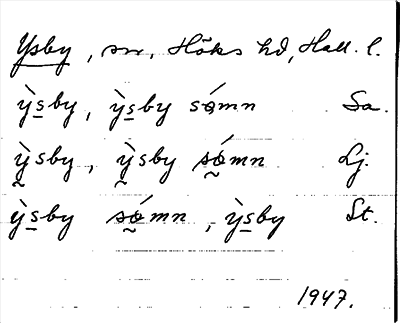 Ysby, sn, Höks hd, Hall. l.
ỳs̲by, ỳs̲by sǿmn Sa.
ỳ̰sby, ỳ̰sby sǿ̰mn Lj.
ỳs̲by sǿ̰mn, ỳs̲by St.
1947.